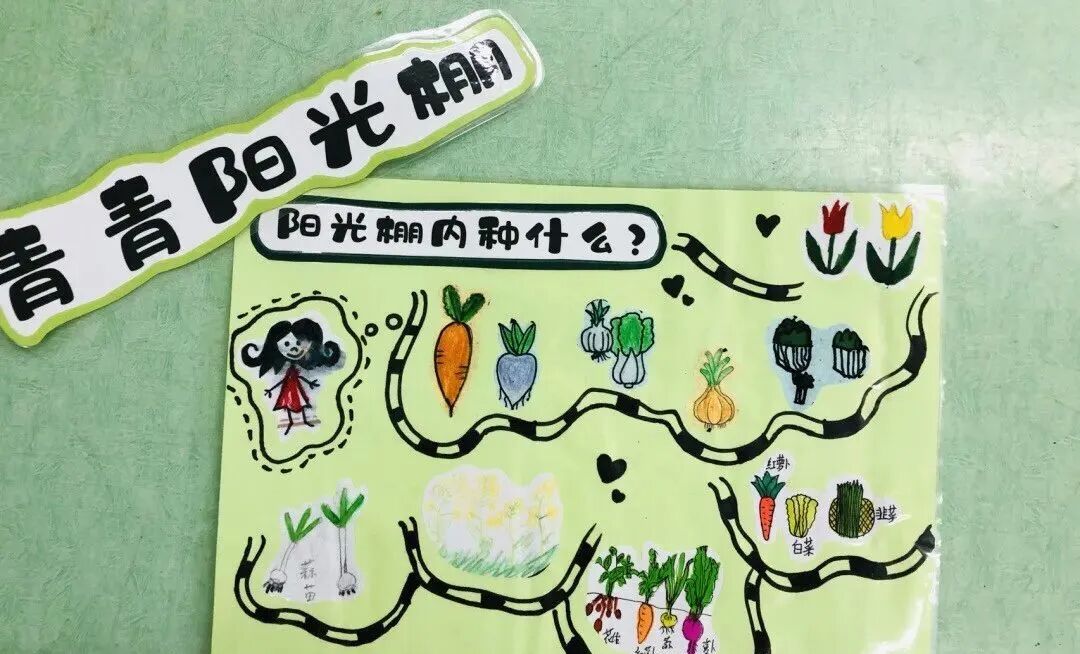 青青阳光棚
阳光棚内种什么？
红萝卜
白菜
韭菜
蒜苗